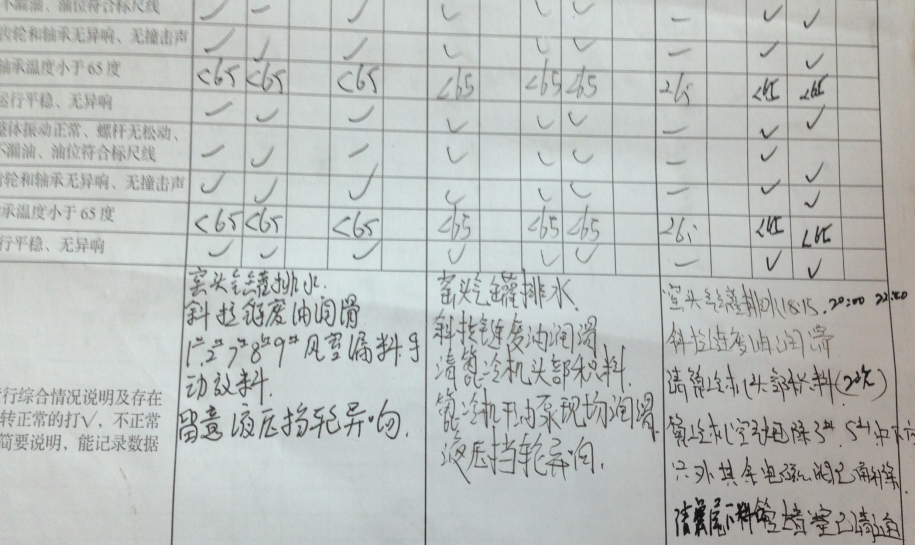 不漏油、油位符合标尺线
齿轮和轴承无异响、无撞击声
轴承温度小于 65 度 <65 <65 <65 <65 <65 <65 <65 <65 <65
运行平稳、无异响
整体振动正常、螺杆无松动、
不漏油、油位符合标尺线
齿轮和轴承无异响、无撞击声
承温度小于 65 度 <65 <65 <65 <65 <65 <65 <65 <65 <65
行平稳、无异响
行综合情况说明及存在
转正常的打√，不正常
简要说明，能记录数据
窑头气罐排水.
斜拉链废油润滑
1# 2# 7# 8# 9# 风室漏料手
动放料.
留意液压挡轮异响.
窑头气罐排水
斜拉链废油润滑
清篦冷机头部积料.
篦冷机干油泵现场润滑.
液压挡轮异响.
窑头气罐排水18:15. 20:00 22:20
斜拉链废油润滑
清篦冷机头部积料(2次)
篦冷机空气炮除3# 5#
外其余电磁阀已